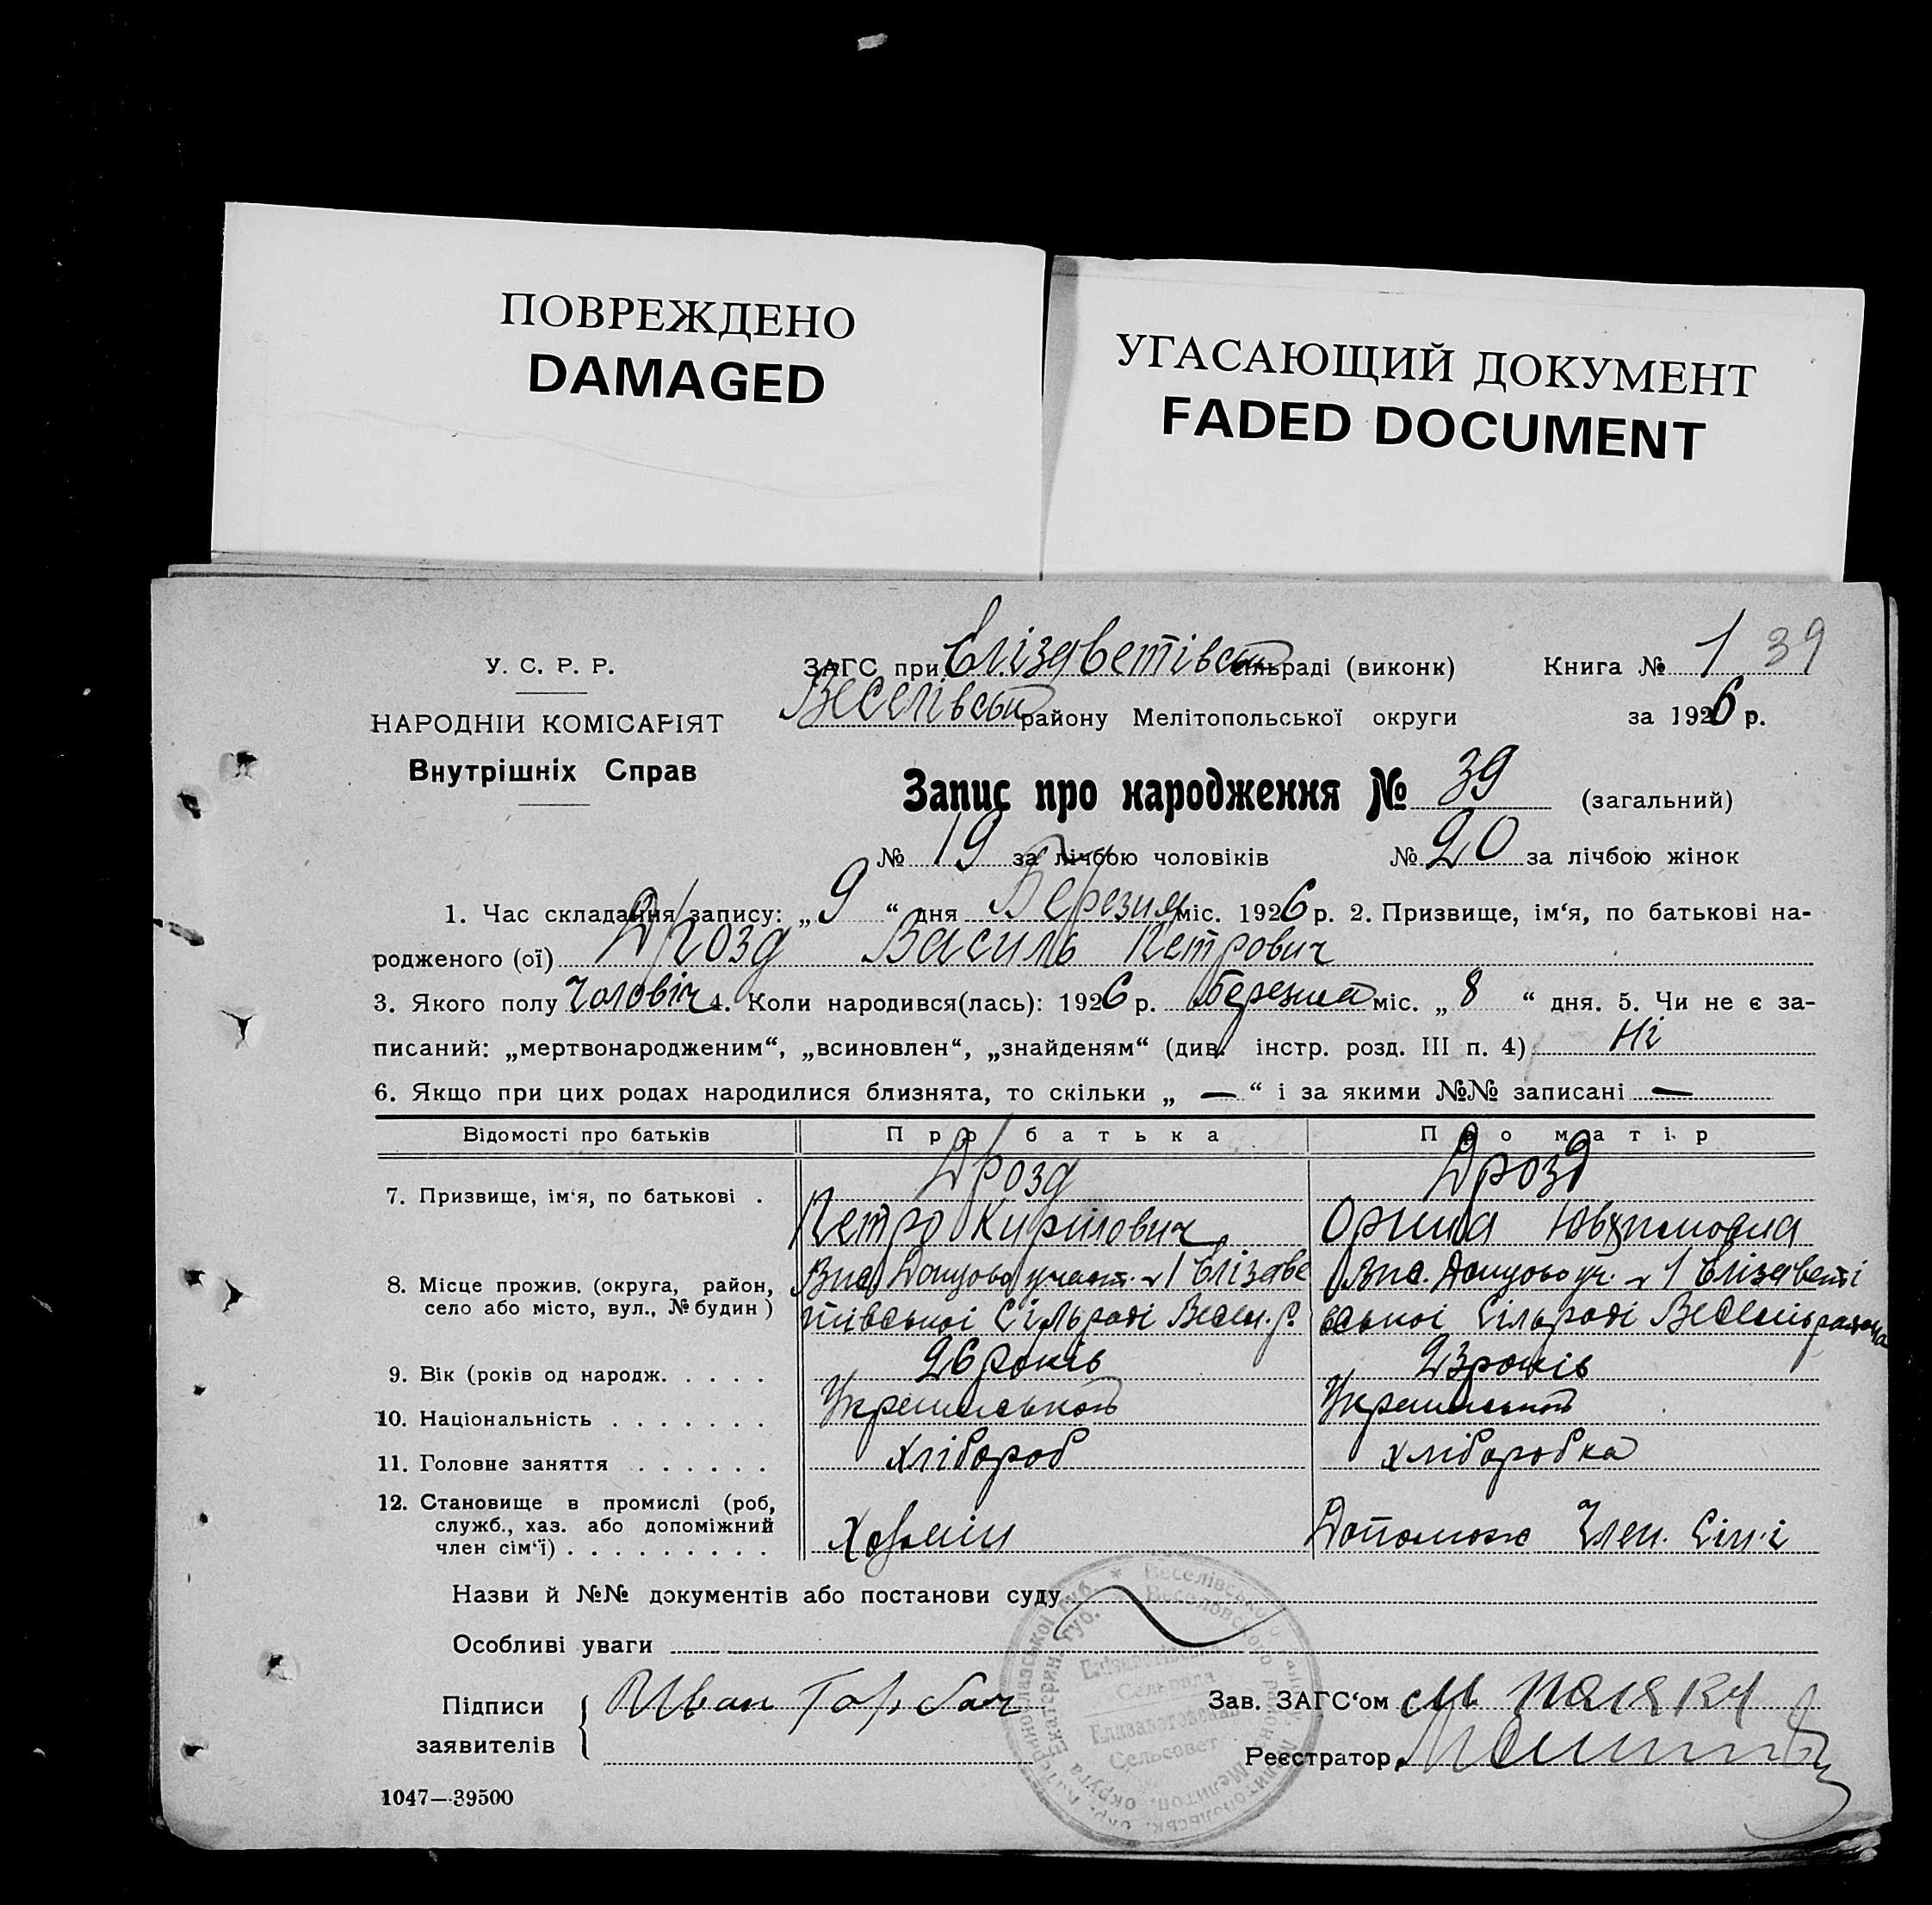 ПОВРЕЖДЕНО
DAMAGED
УГАСАЮЩИЙ ДОКУМЕНТ
FADED DOCUMENT
У. С. Р. Р.
НАРОДНІЙ КОМІСАРІЯТ
Внутрішніх Справ
ЗАГС при Єлізаветівськ сільраді (виконк) Книга № 1 39
Веселівськ району Мелітопольської округи за 1926 р.
Запис про народження № 39 (загальний)
№ 19 за лічбою чоловіків № 20 за лічбою жінок
1. Час складання запису: „ 9 “ дня Березня міс. 1926 р. 2. Призвище, ім‘я, по батькові на-
родженого (ої) Дрозд Василь Петрович
3. Якого полу Чоловіч 4. Коли народився(лась): 1926 р. березня міс. „ 8 “ дня. 5. Чи не є за-
писаний: „мертвонародженим“, „всиновлен“, „знайденям“ (див. інстр. розд. III п. 4) Ні
6. Якщо при цих родах народилися близнята, то скільки „ — “ і за якими №№ записані —
Відомості про батьків Про батька Про матір
7. Призвище, ім‘я, по батькові . Дрозд Дрозд
Петро Кирилович Орина
8. Місце прожив. (округа, район, уч. 1 Єлізаве уч. 1 Єлізаветі
село або місто, вул., № будин ) тівської Сільраді Весел. р. вської Сільраді
9. Вік (років од народж. . . . . 26 років 23 років
10. Національність . . . . . . . Українській Українській
11. Головне заняття . . . . . . хлібороб хліборобка
12. Становище в промислі (роб,
служб., хаз. або допоміжний
член сім‘ї) . . . . . . . . . Хазяїн Допомож Член. Сім·ї
Назви й №№ документів або постанови суду
Особливі уваги
Підписи
заявителів
Иван Горбач
Зав. ЗАГС‘ом
Реєстратор
Єлізаветівська
Сельрада
Елизаветовский
Сельсовет
1047—39500